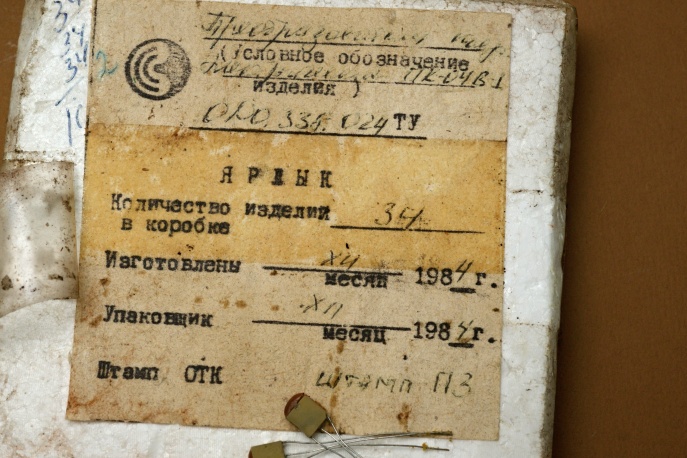 Преобразователь
(условное обозначение
ПК-04В-1
изделия )
ОЮ0.338.024 ТУ
ЯРЛЫК
Количество изделий 34
в коробке
Изготовлены XII 1984 г.
месяц
Упаковщик XII 1984 г.
месяц
Штамп ОТК штамп ПЗ
34
34